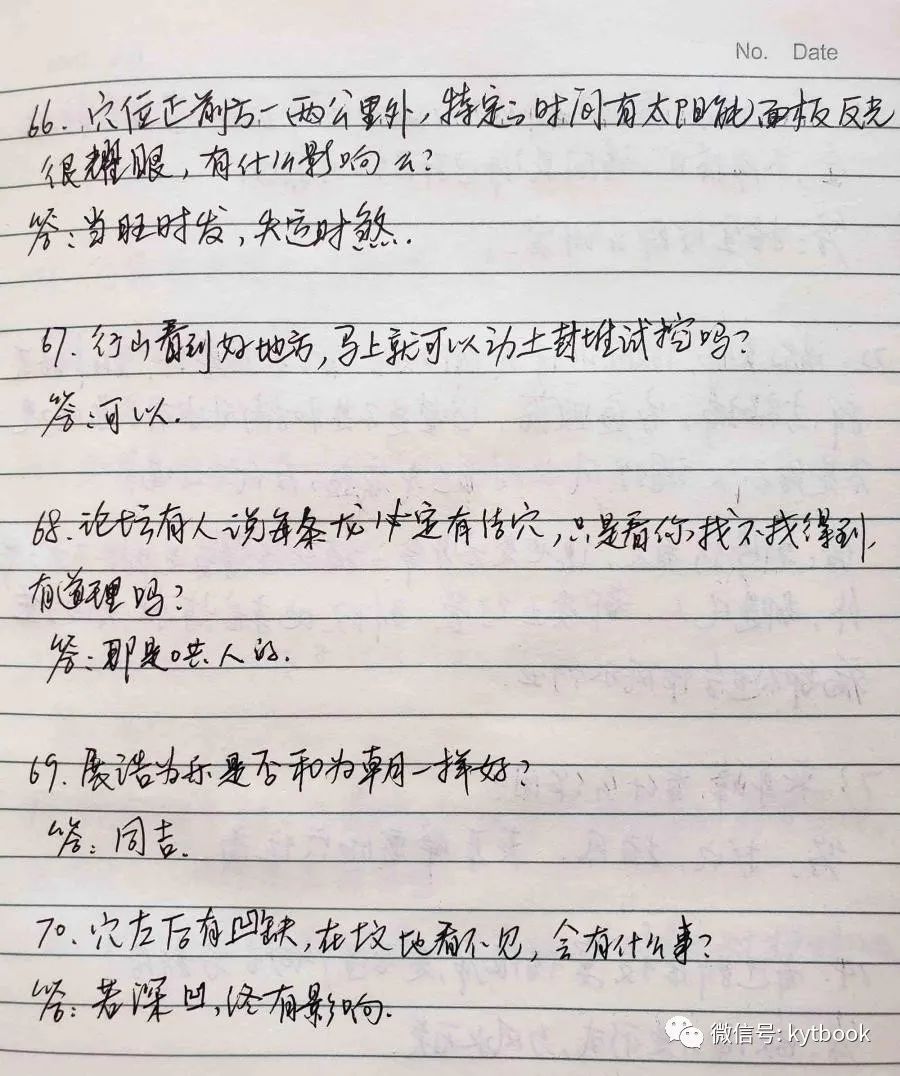 No. Date
66. 穴位正前方一两公里外,特定的时间有太阳能面板反光
很耀眼,有什么影响么?
答:当旺时发,失运时煞.
67. 行山看到好地方,马上就可以动土封堆试挖吗?
答:可以.
68. 论坛有人说每条龙必定有结穴,只是看你找不找得到,
有道理吗?
答:那是哄人的.
69. 展诰为乐是否和为朝一样好?
答:同吉.
70. 穴左后有凹缺,在坟地看不见,会有什么事?
答:若深凹,终有影响.
微信号: kytbook